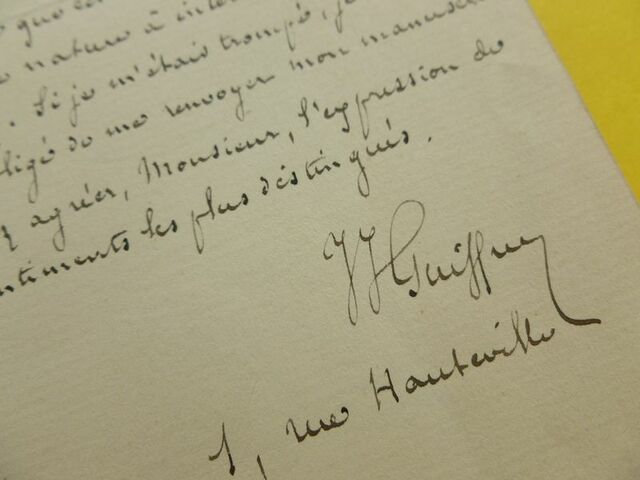 que
nature à inter
. Si je m'étais trompé, je
ligé de me renvoyer mon manusc
z agréer, Monsieur, l'expression de
ntiments les plus distingués.
JJ Guiffrey
1, rue Hauteville